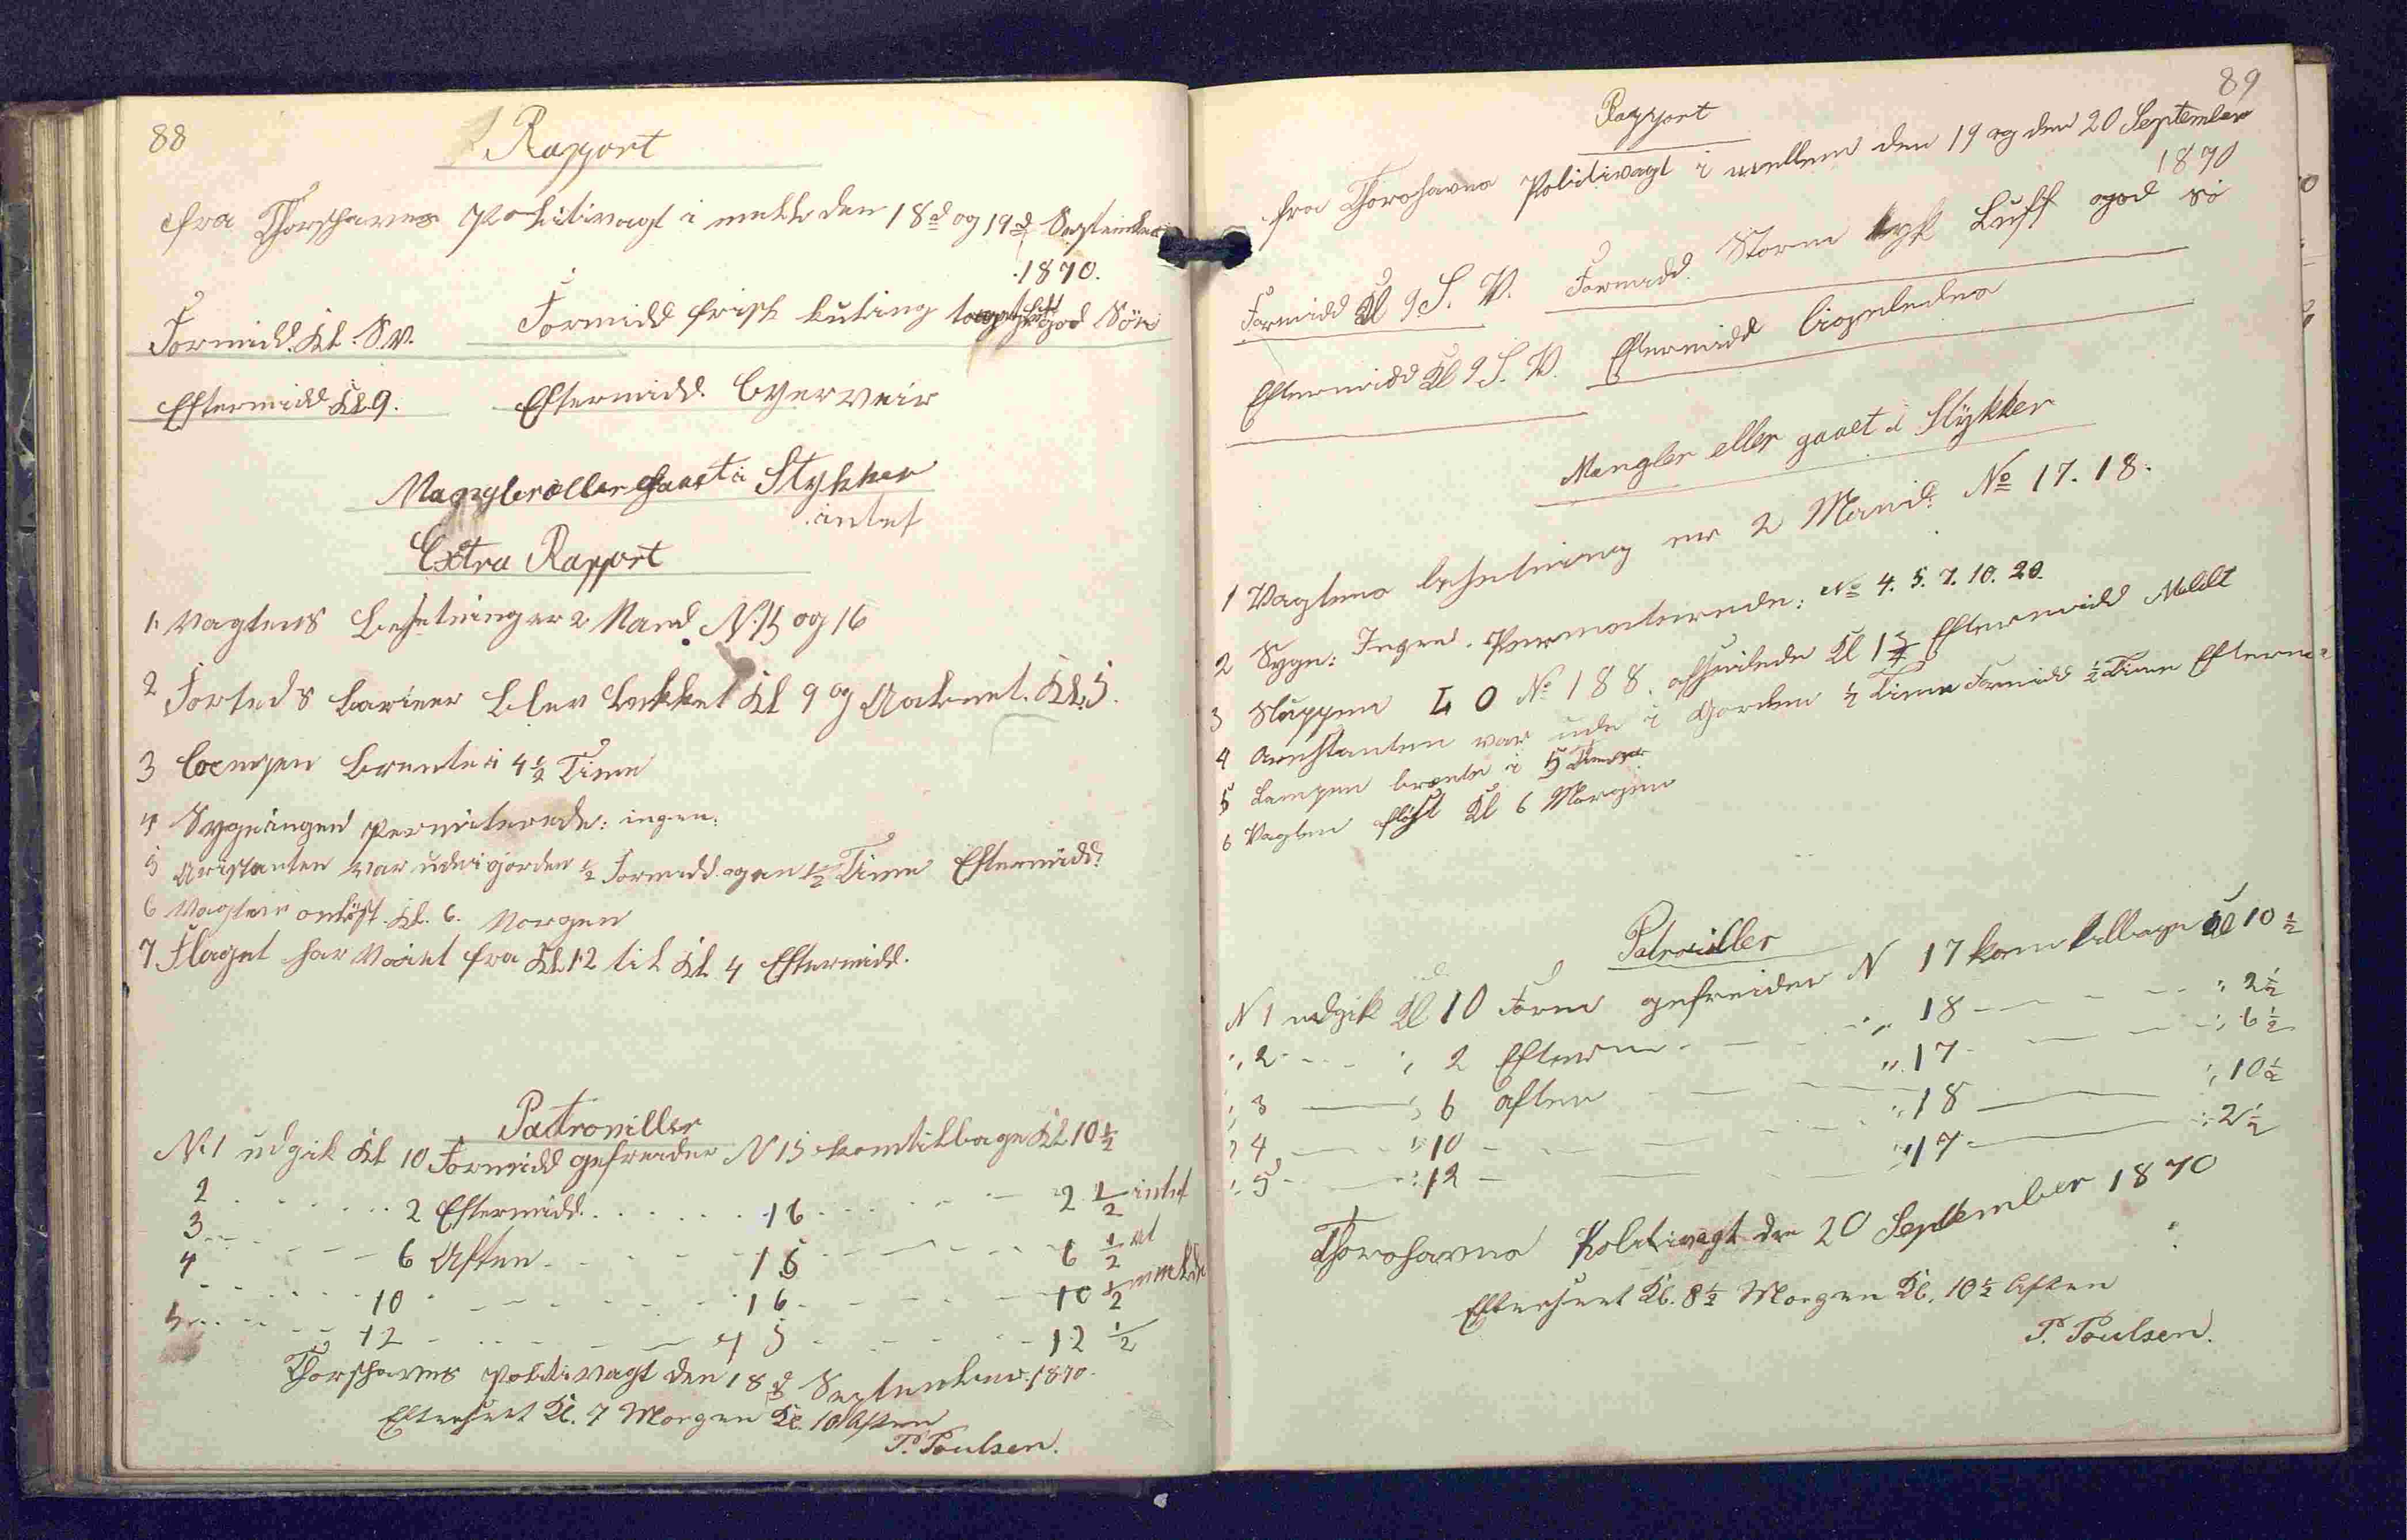 88
Rapport
fra Thorshavns Politivagt i mellem den 18d og 19d September
1870.
Formidd. Kl. S.V. Formidd frisk kuling god Söe
Eftermidd Kl 9. Eftermidd. Byerveir
Mangler eller gaaet i Stykker
intet
Extra Rapport
1. Vagtens Besetning er 2 Mand. N. 15 og 16
2 Forteds barieer blev lukket Kl 9 og Aabnet. Kl. 5.
3 Lampen brente i 4 1/2 Time
4 Syge ingen permiterede: ingen.
5 Aristanten var ude i gorden 1/2 Formidd og en 1/2 Time Eftermidd.
6 Vagten aflöst. Kl. 6. Morgen
7 Flaget har Vaiet fra Kl 12 til Kl 4 Eftermidd.
Patroviller
N. 1 udgik Kl 10 Formidd gefreider N 15 kom tilbage Kl 10 1/2
2 2 Eftermidd. 16 2 1/2 intet
3 6 Aften 15 6 1/2 at
4 10 16 10 1/2 melde
5 12 15 12 1/2
Thorshavns Politivagt den 18d September 1870.
Efterseet Kl. 7 Morgen Kl. 10 Aften
P. Poulsen.
89
Rapport
fra Thorshavns Politivagt i mellem den 19 og den 20 September
1870
Formidd Kl 9 S. V. Formidd. Storm tyk Luft god Sö
Eftermidd Kl 9 S. V. Eftermidd Ligeledes
Mangler eller gaaet i Stykker
1 Vagtens besetning er 2 Mand. No 17. 18.
2 Syge: Ingen. Permeterede: No 4. 5. 7. 10. 20.
3 Sluppen L O No 188. afseilede Kl 1 Eftermidd Meldt
4 Arestanten var ude i Gorden 1/2 Time Formidd 1/2 Time Efterm
5 Lampen brente i 5 Timer
6 Vagten aflöst Kl 6 Morgen
Patroviller
N 1 udgik Kl 10 Form gefreider N 17 kom tilbage Kl 10 1/2
" 2 " 2 Efterm " 18 " 2 1/2
" 3 " 6 aften " 17 " 6 1/2
" 4 " 10 " 18 " 10 1/2
" 5 " 12 " 17 " 2 1/2
Thorshavns Politivagt den 20 September 1870
Efterseet Kl. 8 1/2 Morgen Kl. 10 1/2 Aften
P. Poulsen.